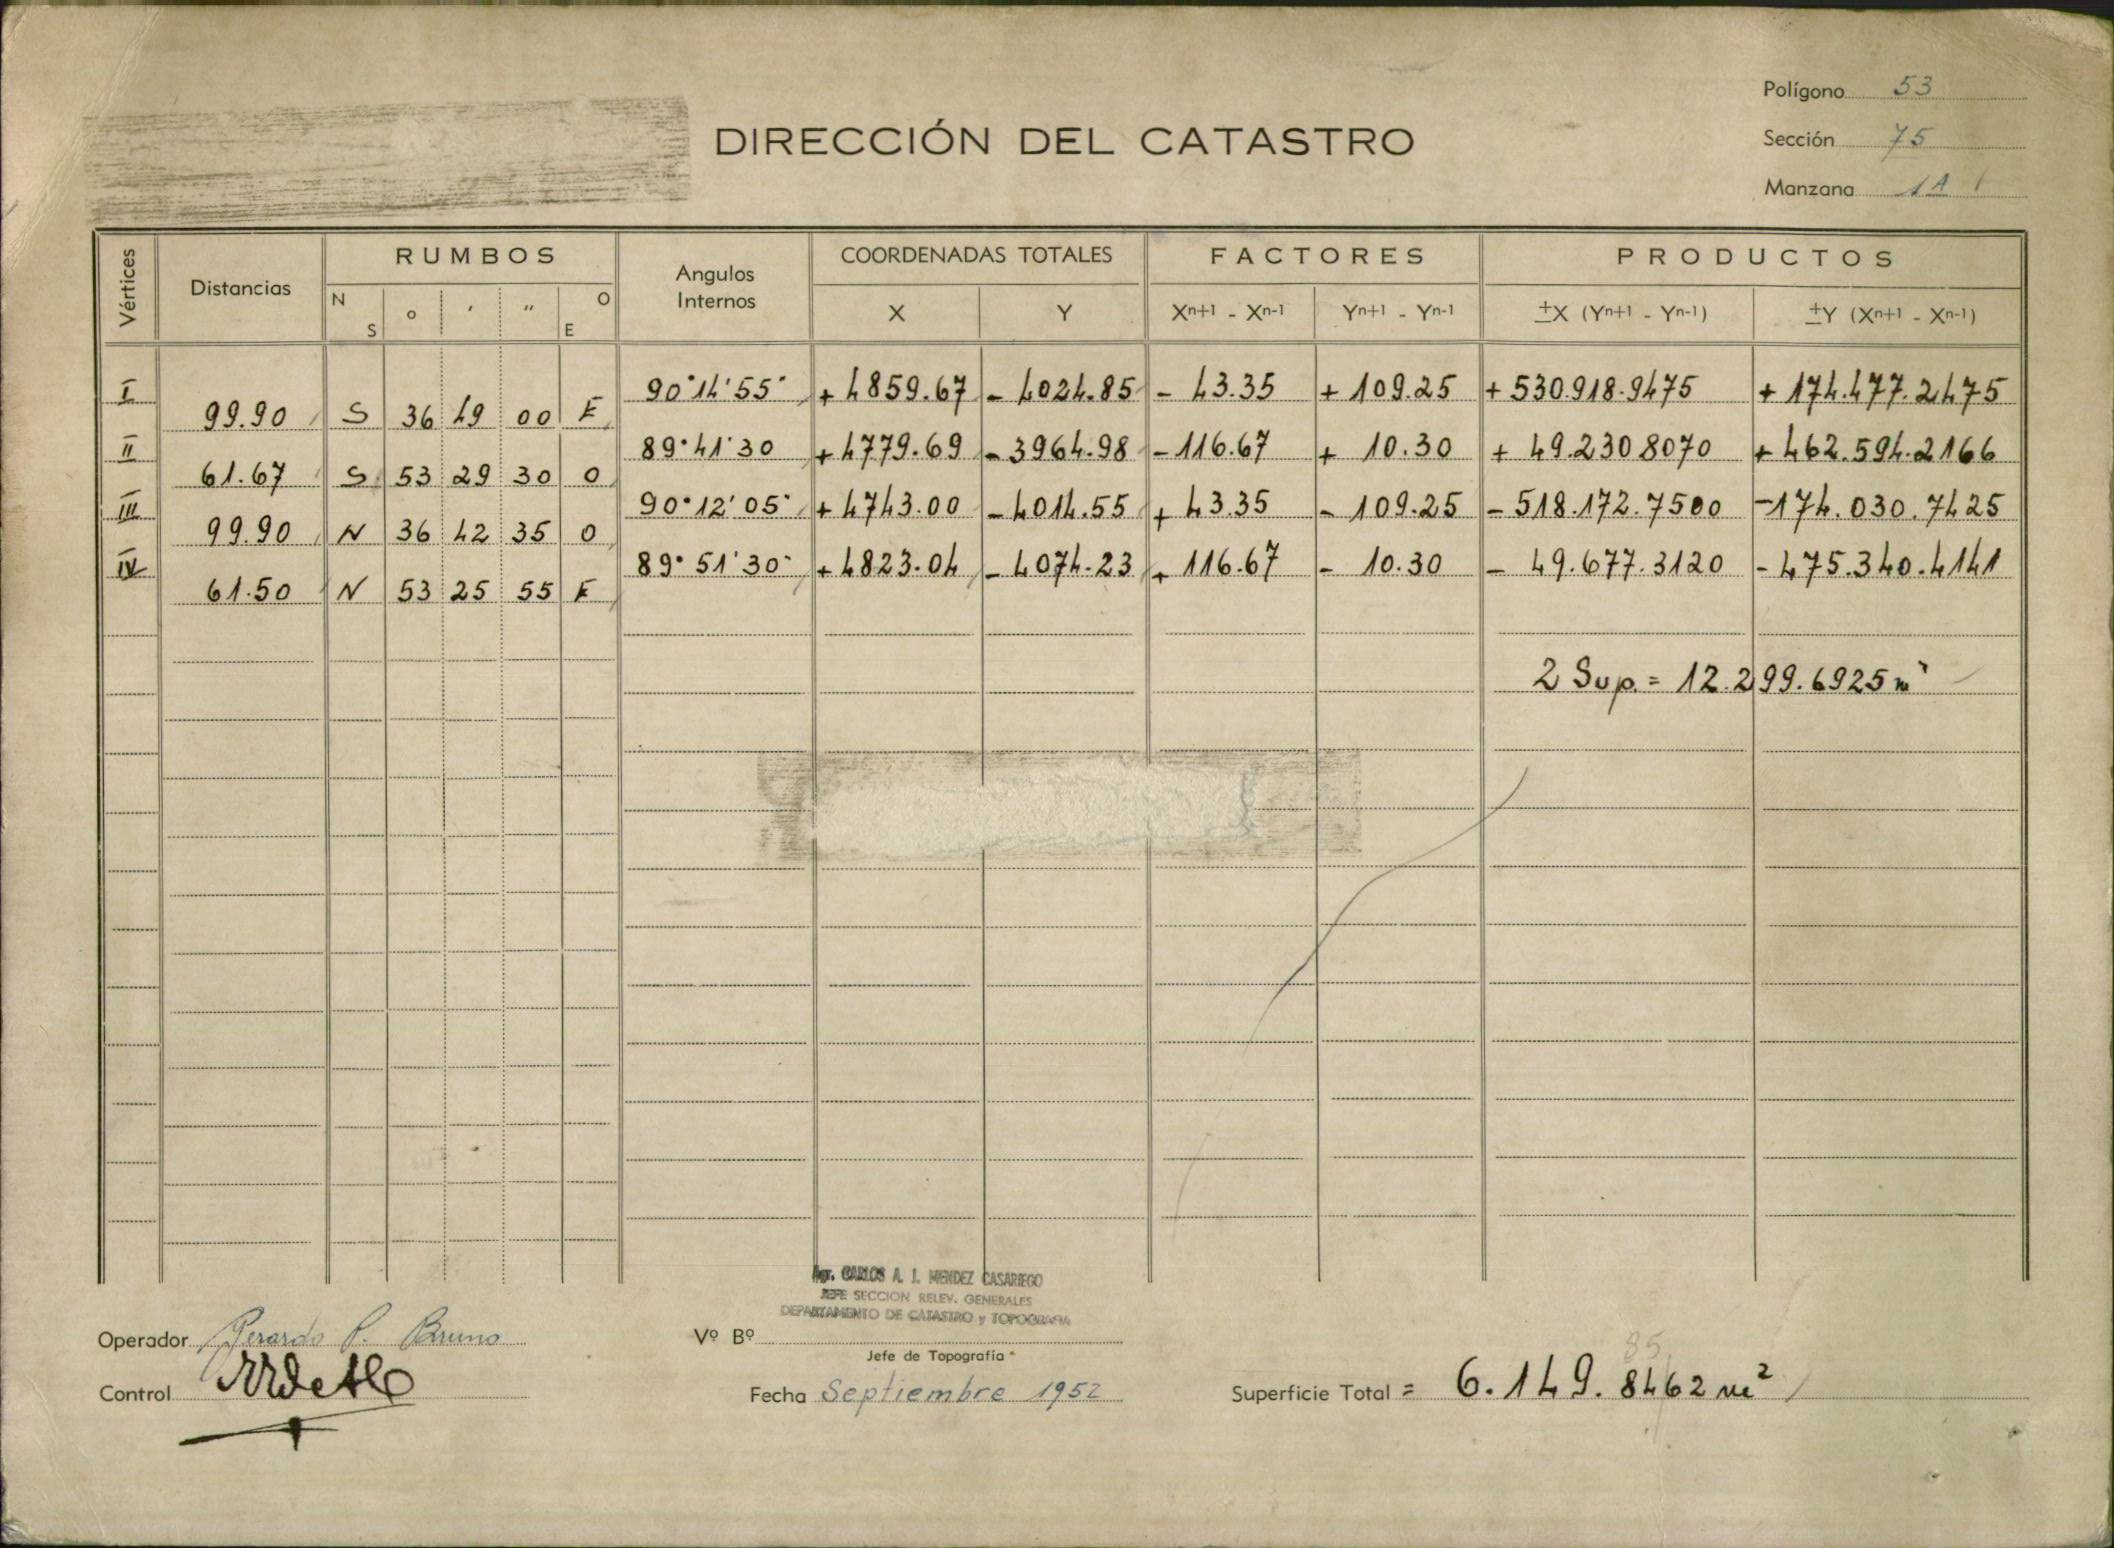 Polígono 53
DIRECCIÓN DEL CATASTRO
Sección 75
Manzana 1A
Vértices Distancias RUMBOS Angulos Internos COORDENADAS TOTALES FACTORES PRODUCTOS
N S o ' " O E X Y Xn+1 - Xn-1 Yn+1 - Yn-1 ±X (Yn+1 - Yn-1) ±Y (Xn+1 - Xn-1)
I 90°14'55" + 4859.67 - 4024.85 - 43.35 + 109.25 + 530.918.9475 + 174.477.2475
99.90 S 36 49 00 E
II 89°41'30 + 4779.69 - 3964.98 - 116.67 + 10.30 + 49.230 8070 + 462.594.2166
61.67 S 53 29 30 O
III 90°12'05" + 4743.00 - 4014.55 + 43.35 - 109.25 - 518.172.7500 - 174.030.7425
99.90 N 36 42 35 O
IV 89°51'30" + 4823.04 - 4074.23 + 116.67 - 10.30 - 49.677.3120 - 475.340.4141
61.50 N 53 25 55 E
2 Sup. = 12.299.6925 m²
Agr. CARLOS A. J. MENDEZ CASARIEGO
JEFE SECCION RELEV. GENERALES
DEPARTAMENTO DE CATASTRO y TOPOGRAFIA
Operador Gerardo P. Bruno
Vº Bº
Jefe de Topografía
85
Control
Fecha Septiembre 1952
Superficie Total = 6.149.8462 m²